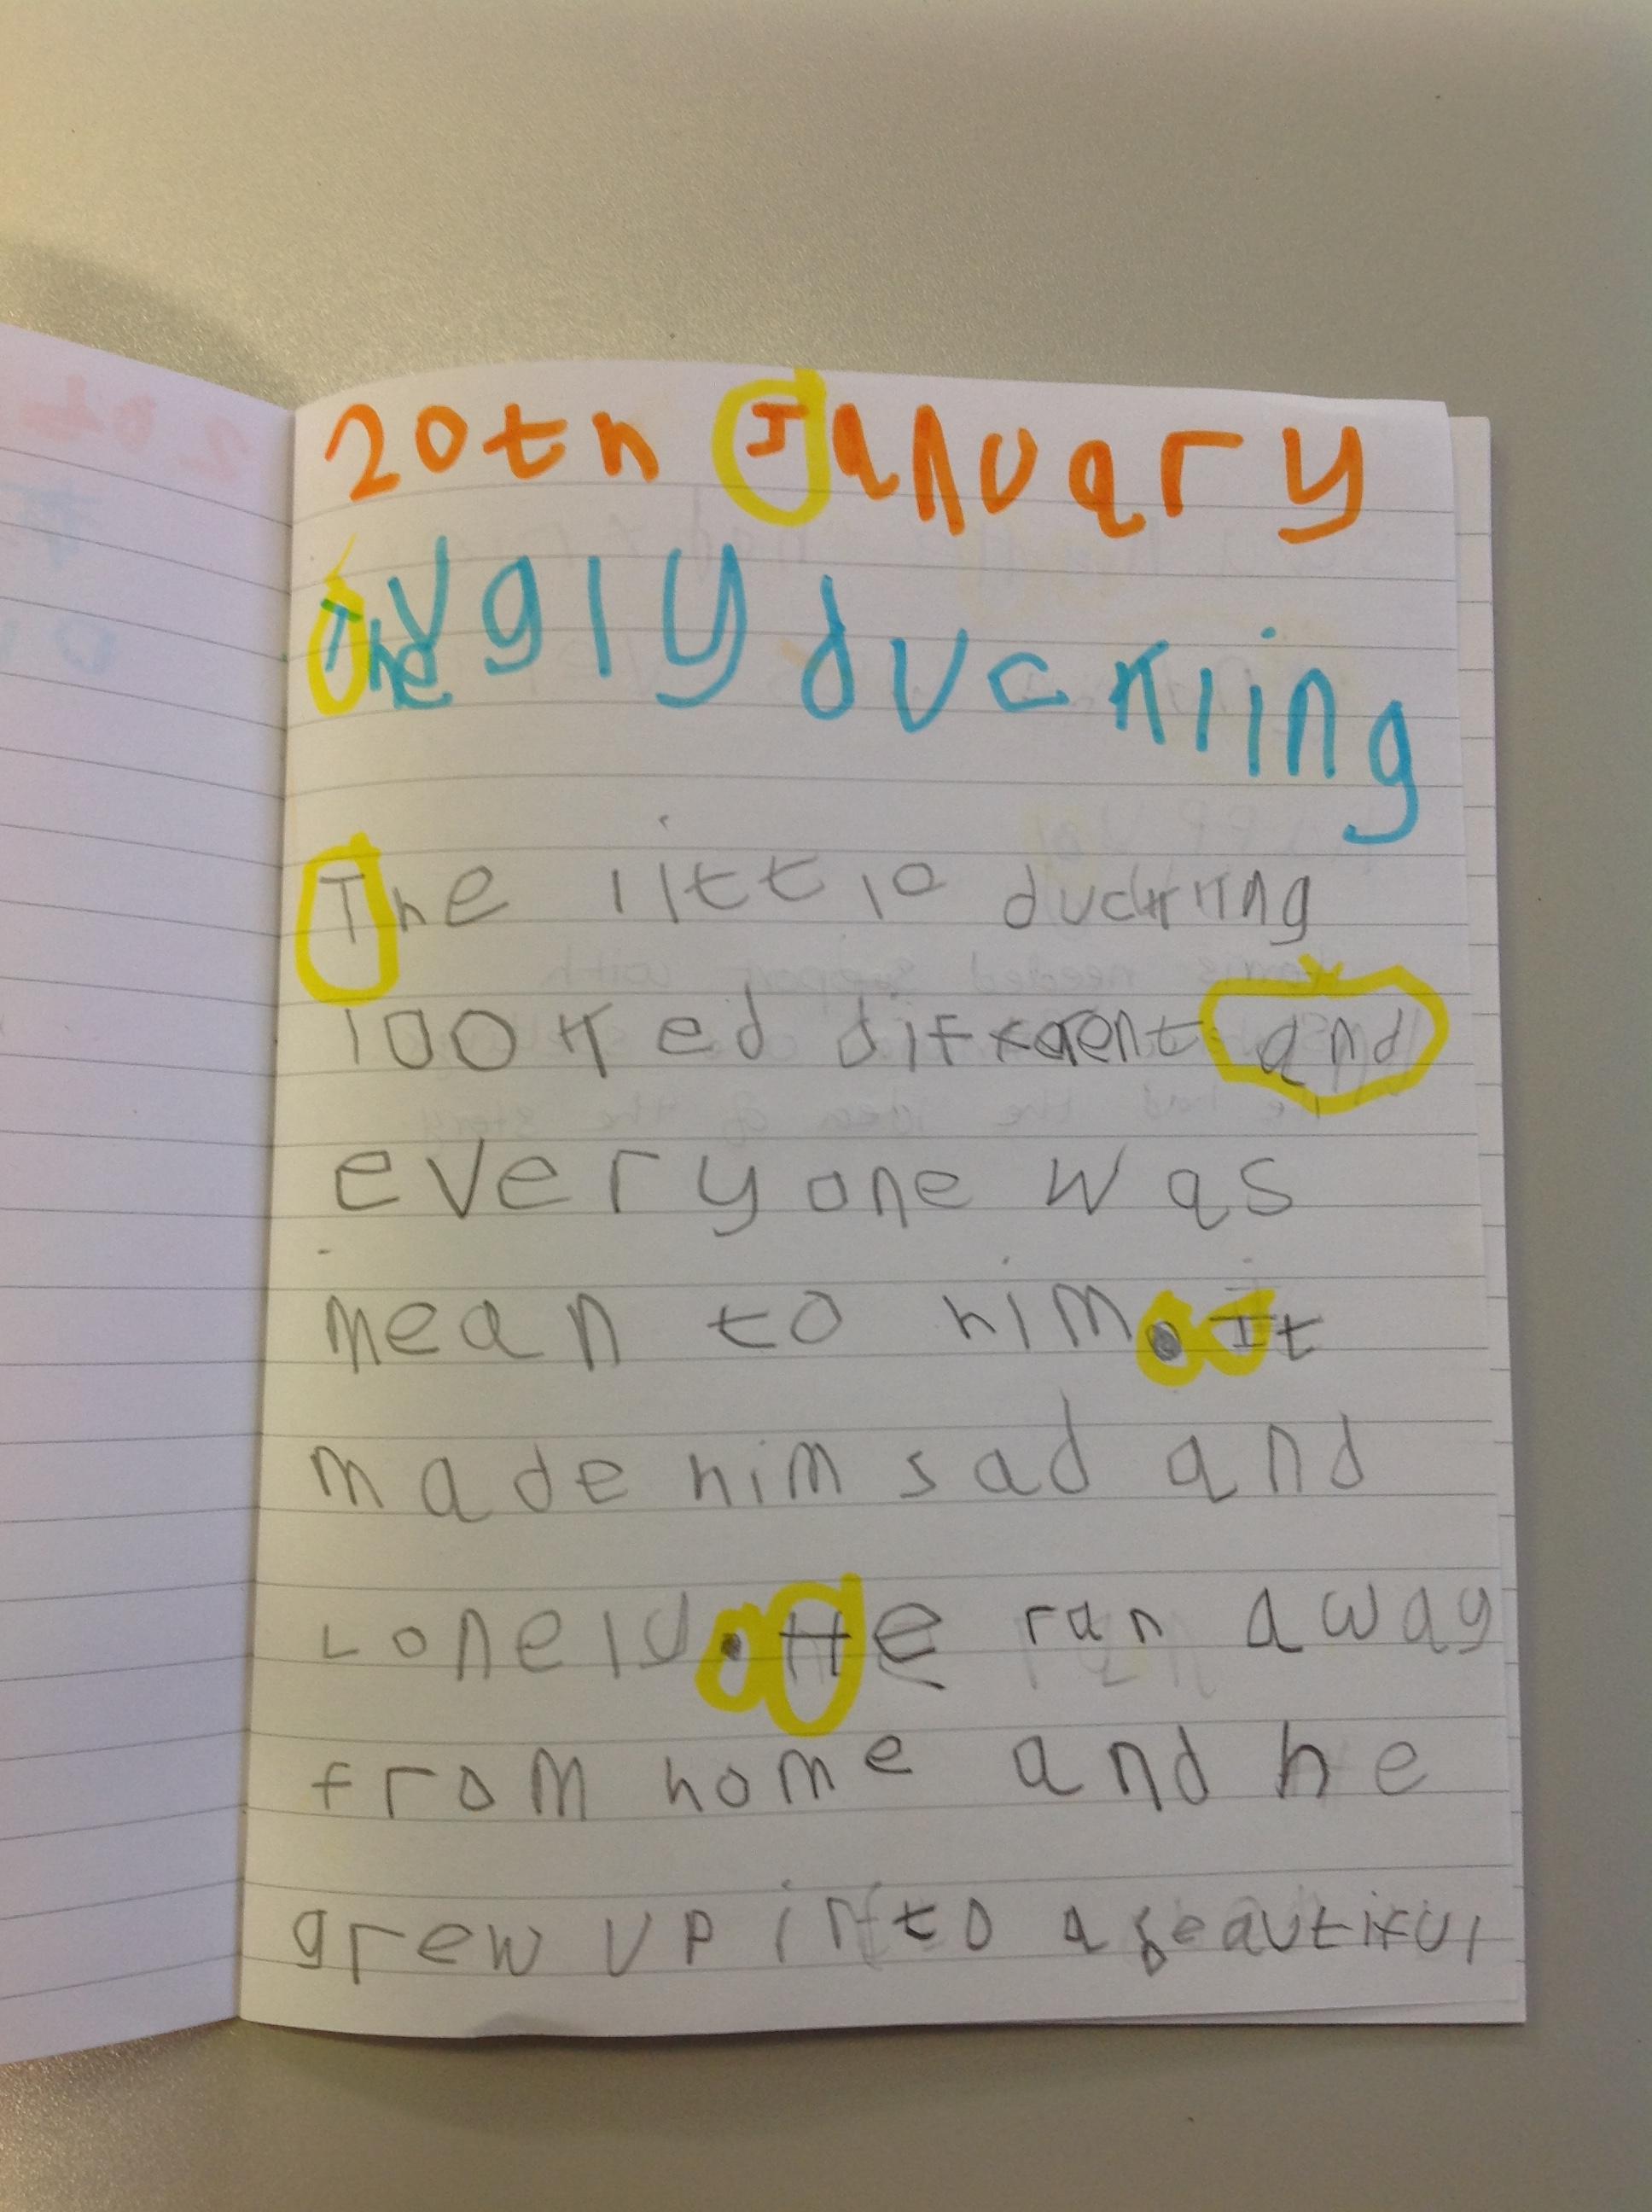 20th January
The ugly duckling
The little duckling
looked diffrent and
everyone was
mean to him. It
made him sad and
Lonely. He ran away
from home and he
grew up into a beautiful